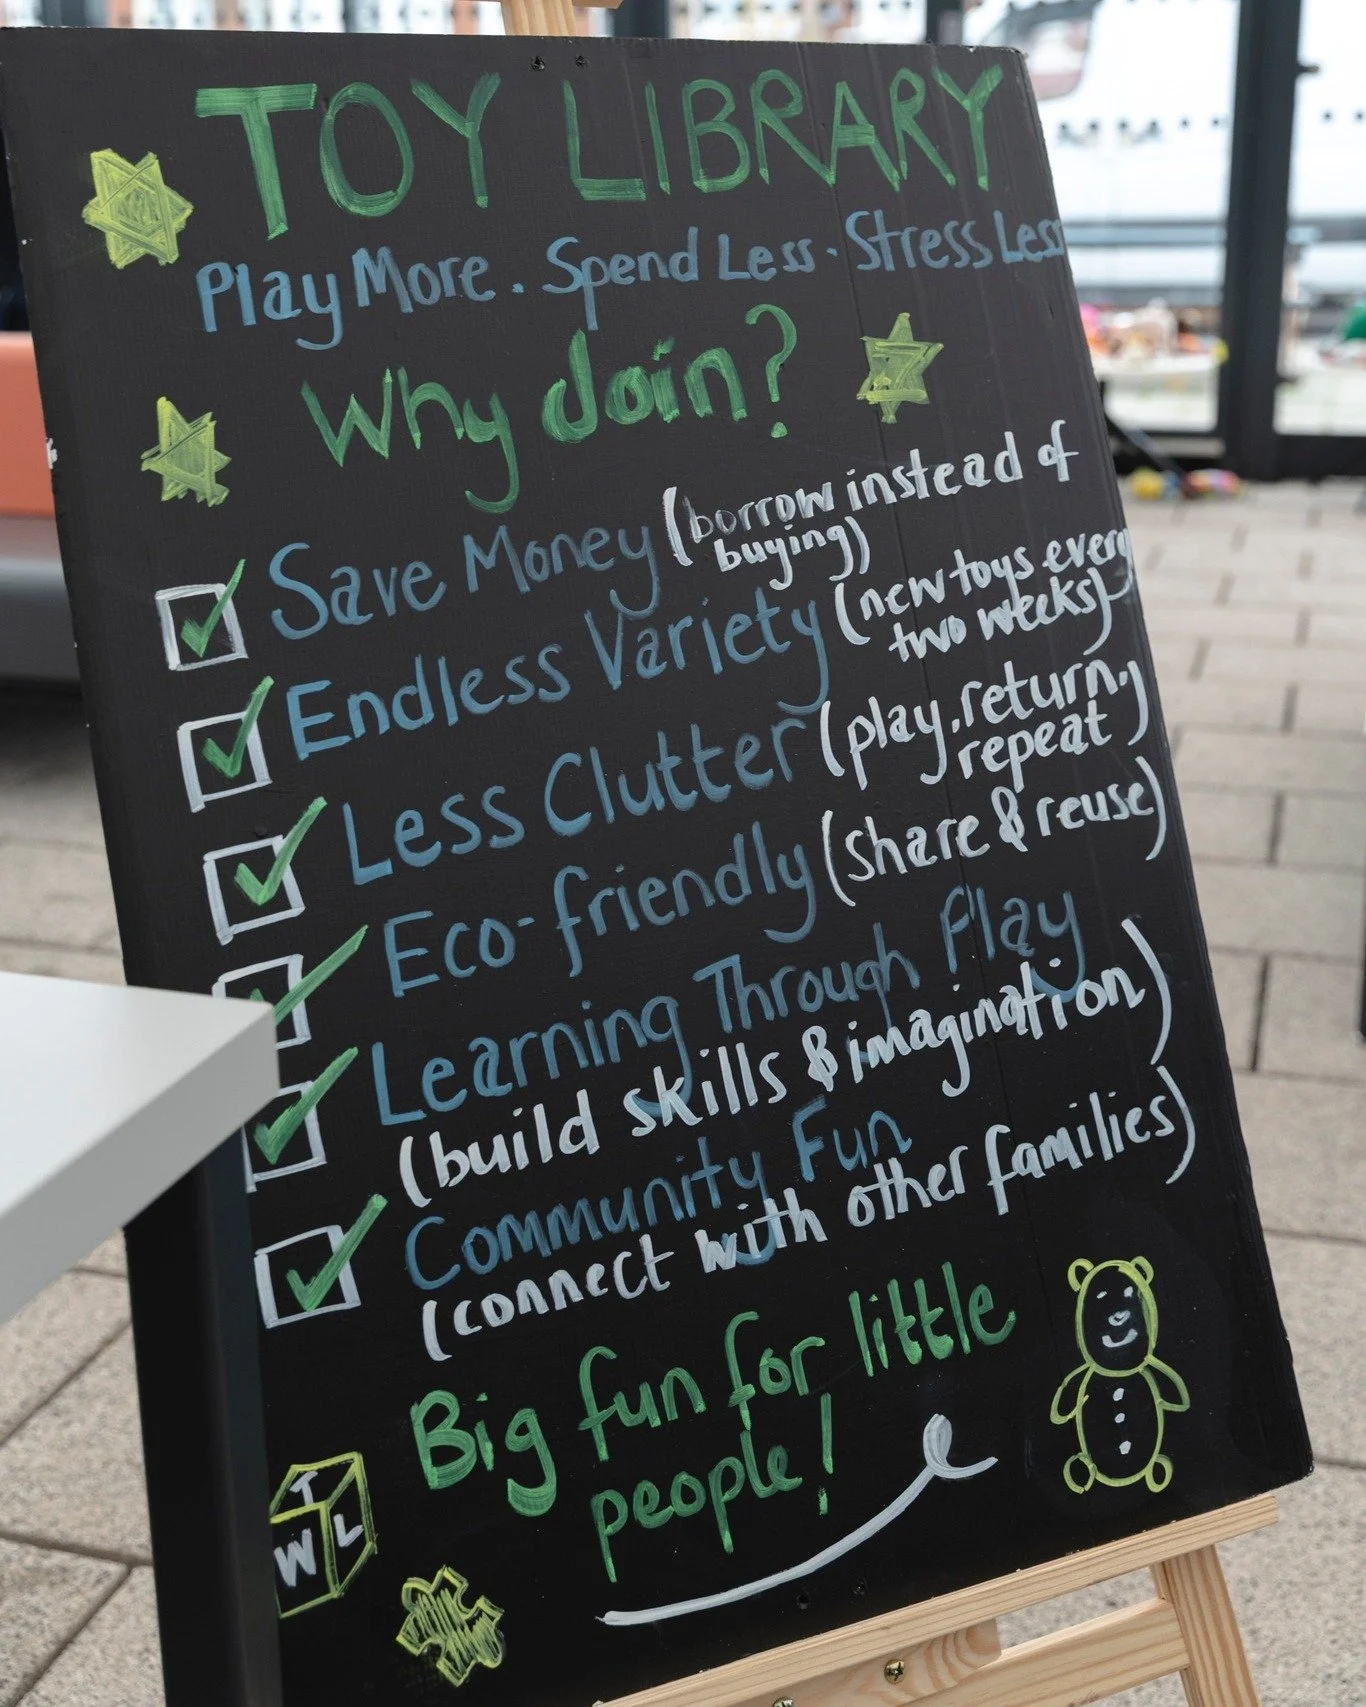 TOY LIBRARY
Play More . Spend Less . Stress Less
Why Join?
Save Money (borrow instead of
buying)
Endless Variety (new toys every
two weeks)
Less Clutter (play, return,
repeat)
Eco-friendly (share & reuse)
Learning Through Play
(build skills & imagination)
Community Fun
(connect with other families)
Big fun for little
people!
T
W L